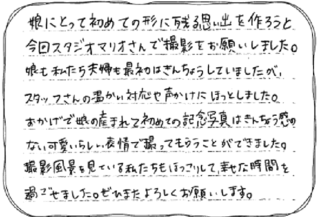 娘にとって初めての形に残る思い出を作ろうと
今回スタジオマリオさんで撮影をお願いしました。
娘も私たち夫婦も最初はきんちょうしていましたが、
スタッフさんの温かい対応や声かけにほっとしました。
おかげで娘の産まれて初めての記念写真はきんちょう感の
ない可愛いらしい表情で撮ってもらうことができました。
撮影風景を見ている私たちもほっこりして、幸せな時間を
過ごせました。ぜひまたよろしくお願いします。